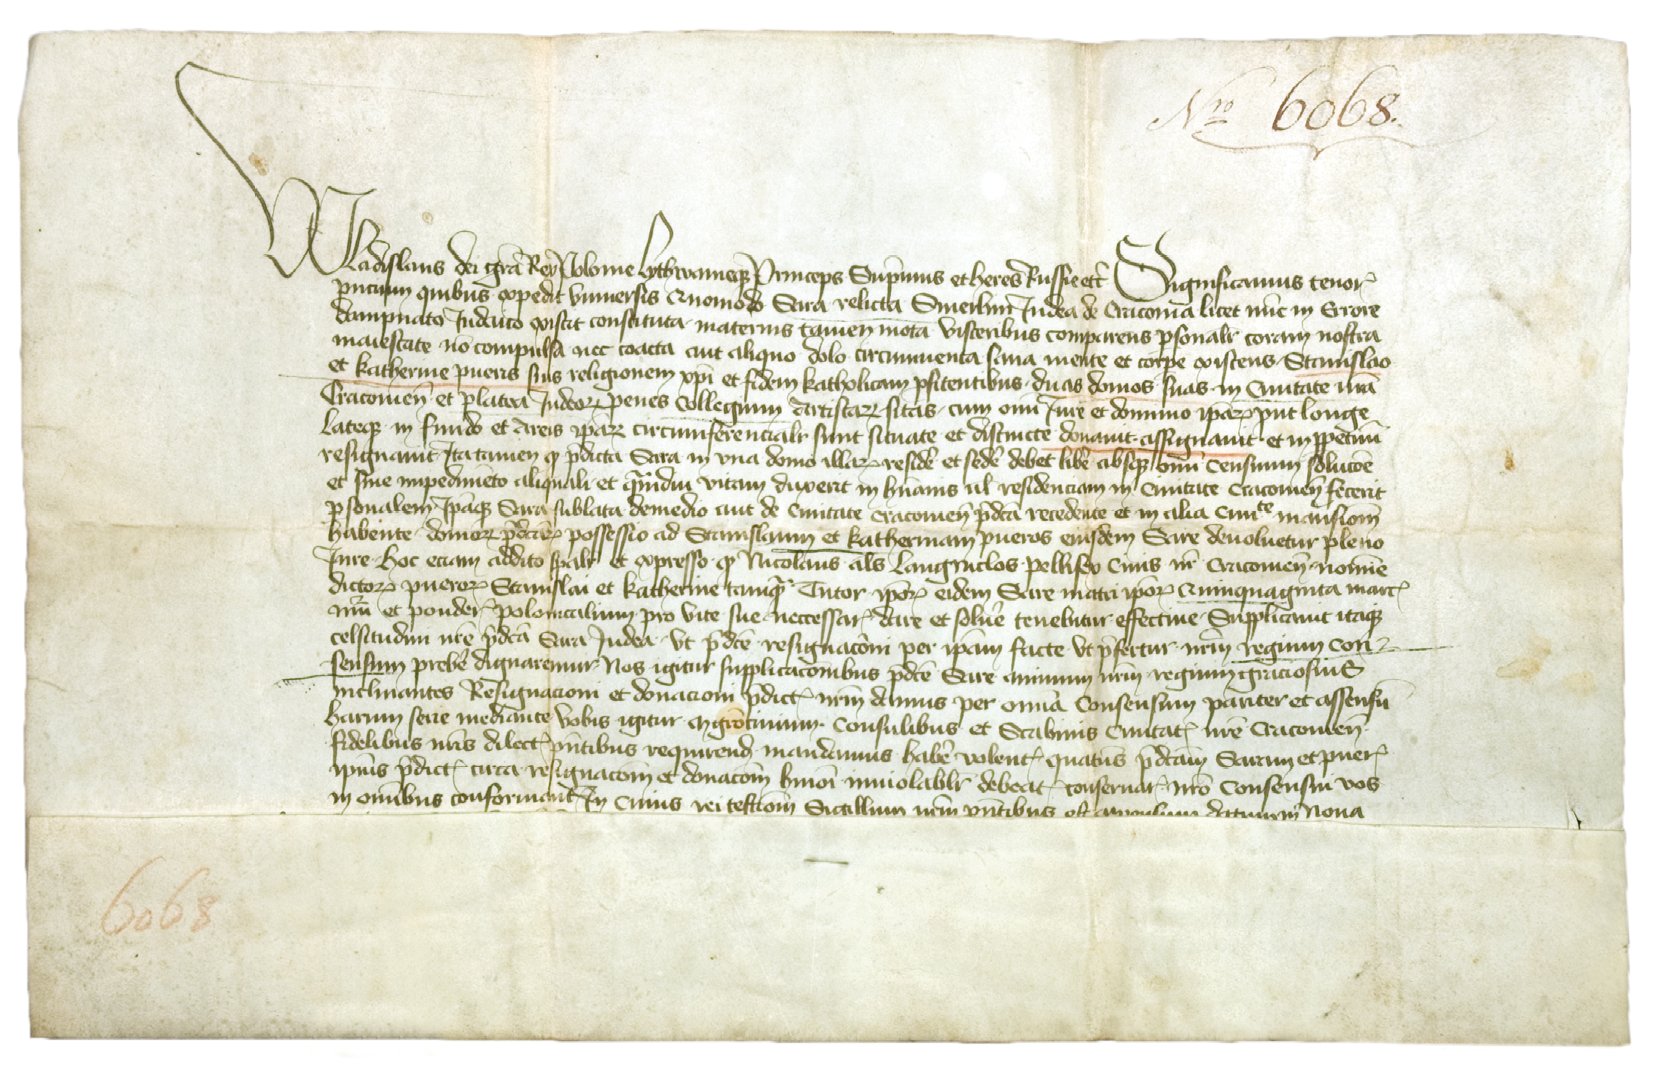 Nro 6068.
Wladislaus dei grã Rex Polonie lythwanieqꝫ Princeps Supmus et heres Russie etc̃ Significamus tenorꝭ
pñtium quibus expedit vniuersis Quomodo Sara relicta Smerlini Judea de Cracouia licet nũc in Errore
dampnato Judaico existit constituta maternis tamen mota visceribus comparens psonalr coram nostra
maiestate nõ compulsa nec coacta aut aliquo dolo circumuenta sana mente et corpe existens Stanislao
et katherine pueris suis religionem xp̃i et fidem katholicam pfitentibus duas domos suas in Ciuitate nr̃a
Cracouieñ et platea Judeorꝝ penes Collegium Artistarꝝ sitas cum omi Jure et dominio ip̃arꝝ put longe
Lateqꝫ in fundo et Areis ip̃arꝝ circumferencialr sunt situate et distincte donauit assignauit et in ppetuũ
resignauit Ita tamen ꝙ p̃dicta Sara in vna domo illarꝝ residẽ et sedẽ debet libẽ absqꝫ omi Censuum solucõe
et sine impedimẽto aliquali et qm̃diu vitam duxerit in hũanis ul residenciam in Ciuitate Cracouieñ fecerit
psonalem Ip̃aqꝫ Sara sublata de medio aut de Ciuitate Cracouieñ p̃dcã recedente et in alia Ciuite mansioñ
habente domorꝝ p̃dcãrꝝ possessio ad Stanislaum et katherinam pueros eiusdem Sare deuoluetur pleno
Jure Hoc eciam addito spalr et expresso ꝙ Nicolaus als̃ Langniclos pellifex Ciuis nr̃ Cracouieñ nomine
dictorꝝ puerorꝝ Stanislai et katherine tamqꝫ Tutor ip̃orꝝ eidem Sare matri ip̃orꝝ Quinquaginta marcꝭ
nũi et ponderꝭ polonicalium pro vite sue neccessarꝭ dare et soluẽ tenebitur effectiue Supplicauit itaqꝫ
celsitudini nr̃e p̃dcã Sara Judea vt p̃dcẽ resignacõni per ip̃am facte vt p̃fertur nr̃m regium con
sensum prebẽ dignaremur Nos igitur supplicacõnibus p̃dcẽ Sare animum nr̃m regium graciosius
inclinantes Resignacioni et donacioni p̃dictꝭ nr̃m damus per omia Consensum pariter et assensũ
harum serie mediante vobis igitur Consulibus et Scabinis Ciuitatꝭ nr̃e Cracouieñ
fidelibus nr̃is dilectꝭ pñtibus requirendꝭ mandamus habẽ volentꝭ quatenꝰ p̃dcãm Saram et puerꝭ
ip̃ius p̃dictꝭ circa resignacõm et donacõm hmõi inuiolablr debeatꝭ conseruarꝭ nr̃o Consensui vos
in omibus conformantꝭ In Cuius rei testiõm Sigillum nr̃m pñtibus est appensum datum in Noua
6068